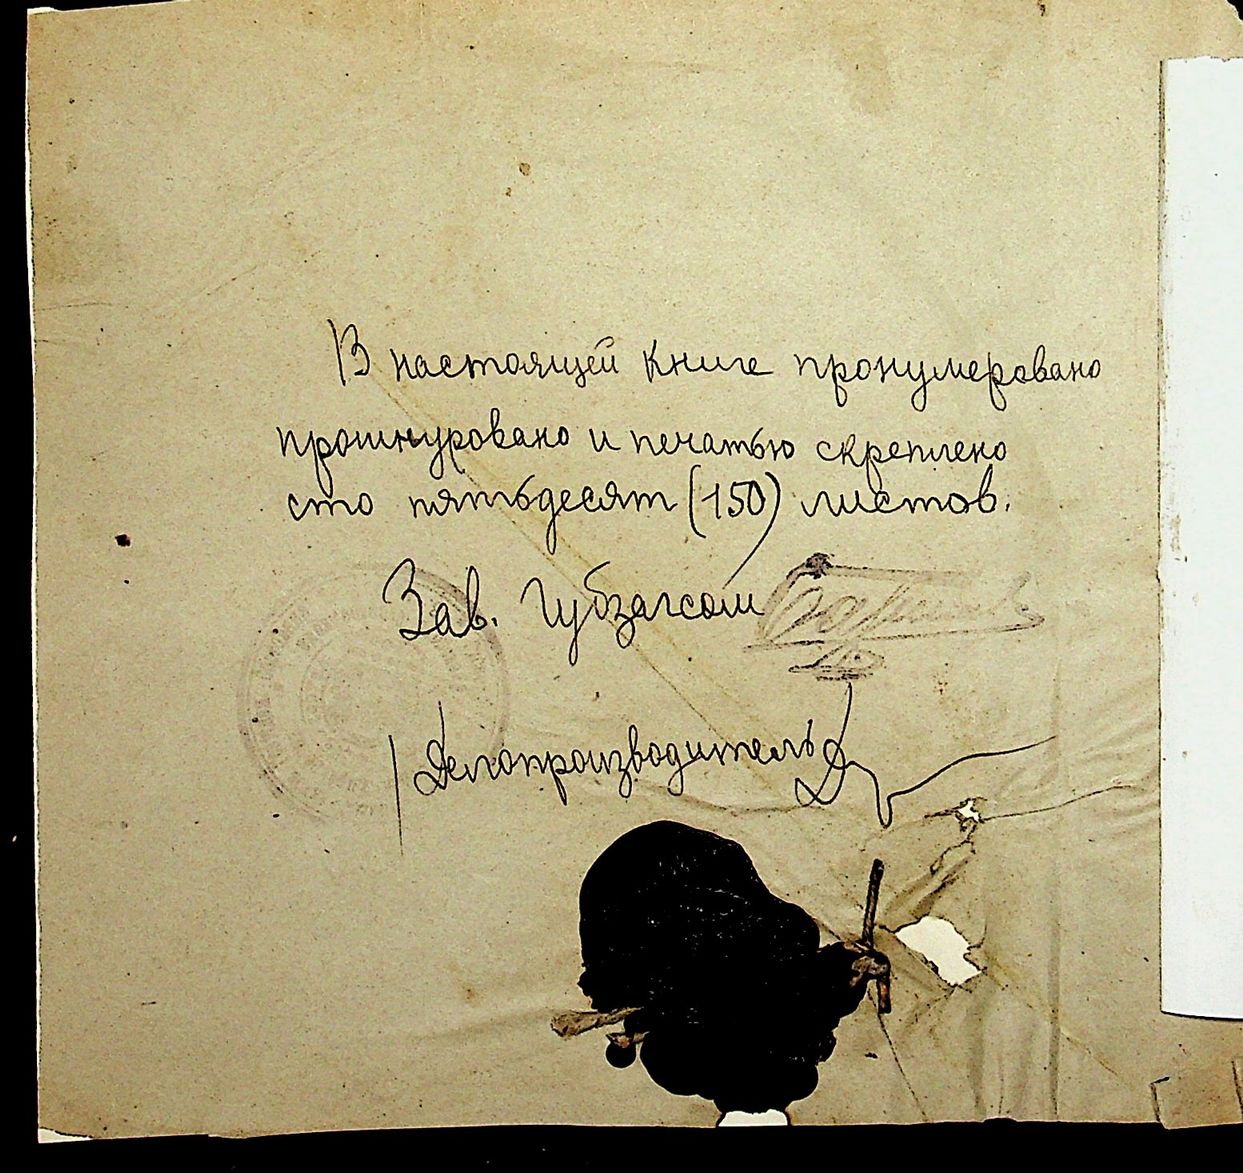 В настоящей книге пронумеровано
прошнуровано и печатью скреплено
сто пятьдесят (150) листов.
Зав. Губзагсом
Делопроизводитель